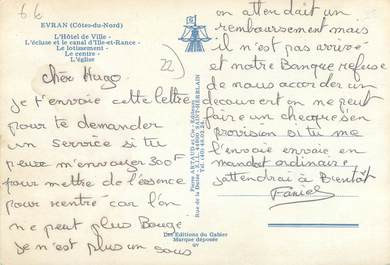 66
EVRAN (Côtes-du-Nord)
L'Hôtel de Ville -
L'écluse et le canal d'Ille-et-Rance -
Le lotissement -
Le centre -
L'église
22)
cher Hugo
je t'envoie cette lettre
pour te demander
un service si tu
peux m'envoyer 300F
pour mettre de l'éssence
pour rentré car l'on
ne peut plus Bougé
je n'est plus un sous
Pierre ARTAUD et Cie - Editeurs
Rue de la Dutée - Z.I.L. 44800 SAINT-HERBLAIN
Les Editions du Gabier
Marque déposée
GV
on attendait un
remboursement mais
il n'est pas arrivé
et notre Banque refuse
de nous accorder un
decouvert on ne peut
faire un cheque sen
provision si tu me
l'envoie envoie en
mandat ordinaire
j'attendrai à Bientôt